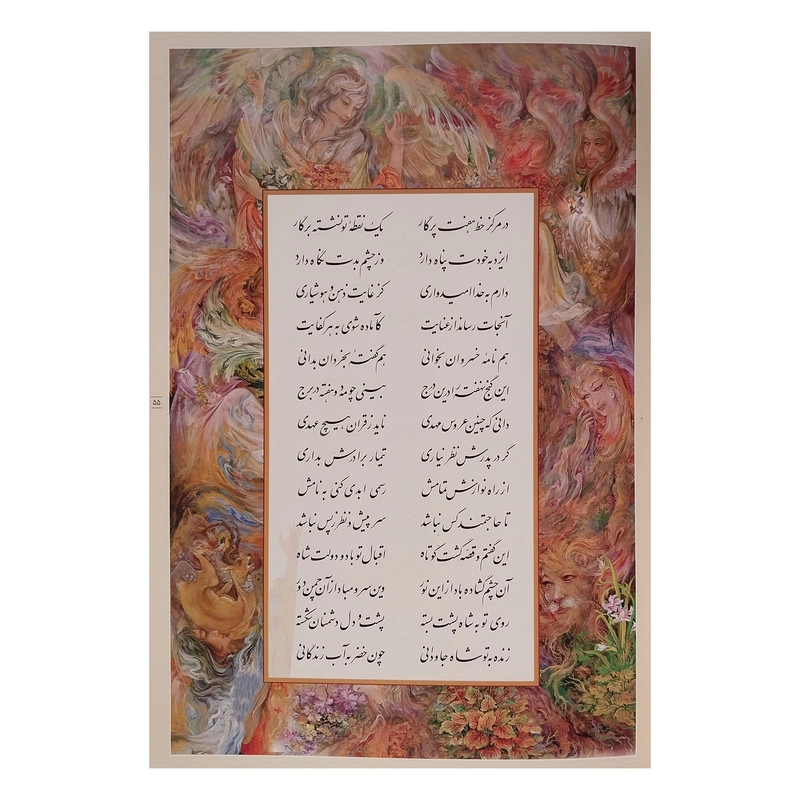 در مرکز خط هفت پرگار یک نقطهٔ تو نشسته بر کار
ایزد به خودت پناه دارد وز چشم بدت نگاه دارد
دارم به خدا امیدواری کز غایت ذهن و هوشیاری
آنجات رساند از عنایت کآماده شوی به هر کفایت
هم نامهٔ خسروان بخوانی هم گفتهٔ بخردان بدانی
این گنج نهفته را درین درج بینی چو مه دو هفته در برج
دانی که چنین عروس مهدی ناید ز قران هیچ عهدی
گر در پدرش نظر نیاری تیمار برادرش بداری
از راه نوازش تمامش رسمی ابدی کنی به نامش
تا حاجتمند کس نباشد سر پیش و نظر ز پس نباشد
این گفتم و قصه گشت کوتاه اقبال تو باد و دولت شاه
آن چشم گشاده باد از این نور وین سرو مباد از آن چمن دور
روی تو به شاه پشت بسته پشت و دل دشمنان شکسته
زنده به تو شاه جاودانی چون خضر به آب زندگانی
۵۵